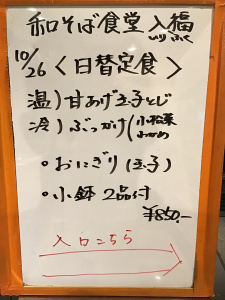 和そば食堂 入福
いりふく
10/26 〈日替定食〉
温)甘あげ玉子とじ
冷)ぶっかけ(小松菜
わかめ
・おにぎり(玉子)
・小鉢 2品付
¥850-
入口こちら